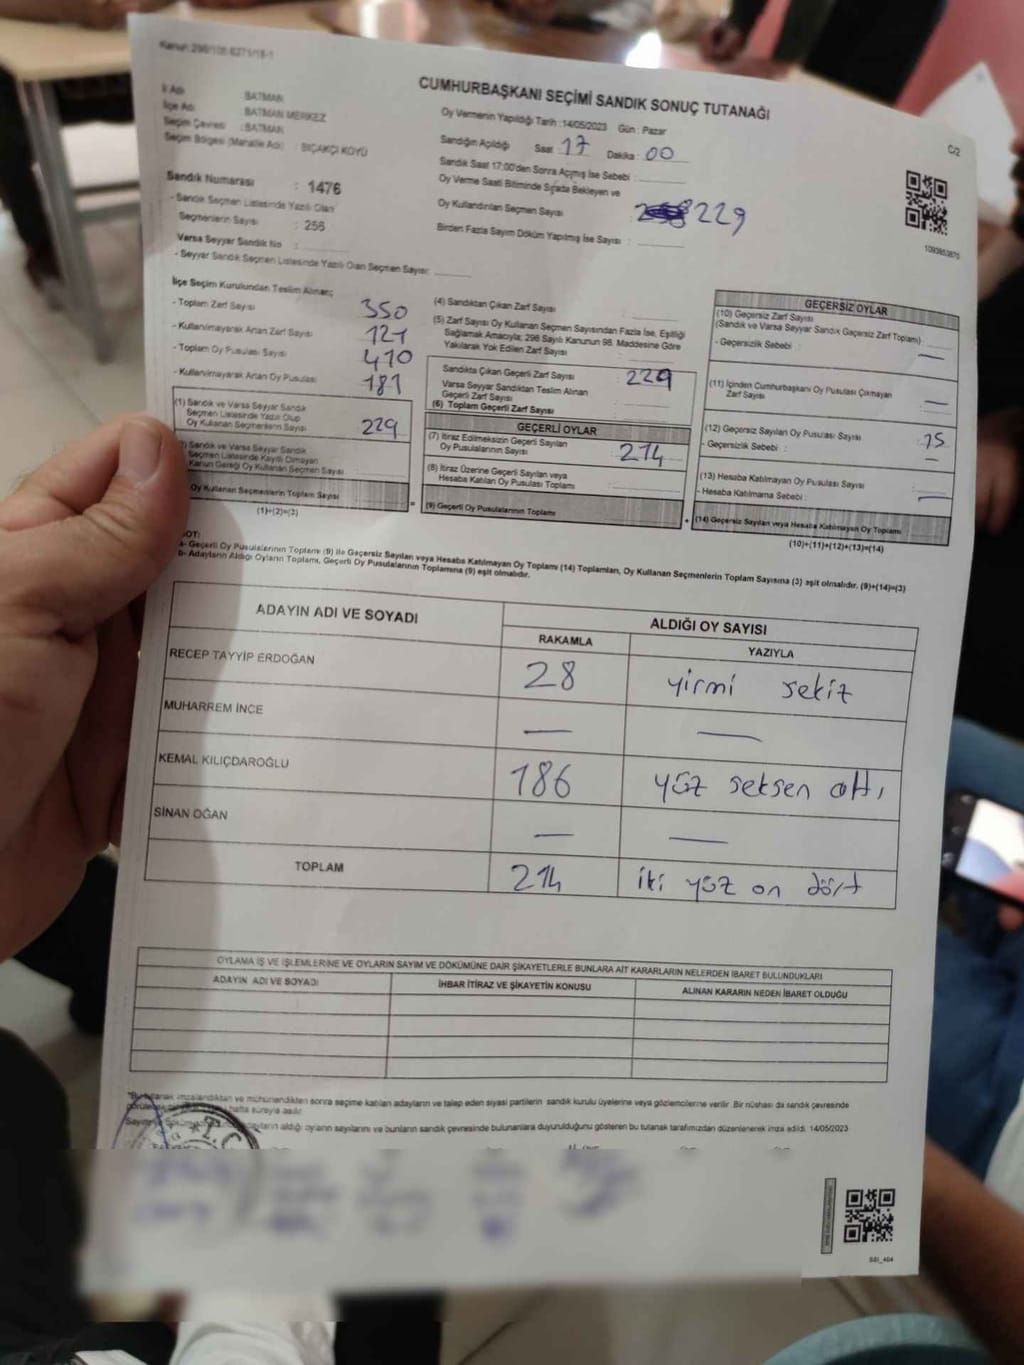 Kanun: 298/105-6271/18-1
CUMHURBAŞKANI SEÇİMİ SANDIK SONUÇ TUTANAĞI
C/2
İl Adı : BATMAN
İlçe Adı : BATMAN MERKEZ
Seçim Çevresi : BATMAN
Seçim Bölgesi (Mahalle Adı) : BIÇAKÇI KÖYÜ
Oy Vermenin Yapıldığı Tarih :14/05/2023 Gün : Pazar
Sandığın Açıldığı Saat 17 Dakika : 00
Sandık Saat 17:00'den Sonra Açmış İse Sebebi :
Oy Verme Saati Bitiminde Sırada Bekleyen ve
Oy Kullandırılan Seçmen Sayısı : 229
Birden Fazla Sayım Döküm Yapılmış İse Sayısı :
1093853870
Sandık Numarası : 1476
- Sandık Seçmen Listesinde Yazılı Olan
Seçmenlerin Sayısı : 256
Varsa Seyyar Sandık No :
- Seyyar Sandık Seçmen Listesinde Yazılı Olan Seçmen Sayısı:
İlçe Seçim Kurulundan Teslim Alınan;
- Toplam Zarf Sayısı 350
- Kullanılmayarak Artan Zarf Sayısı 121
- Toplam Oy Pusulası Sayısı 410
- Kullanılmayarak Artan Oy Pusulası 181
(1) Sandık ve Varsa Seyyar Sandık
Seçmen Listesinde Yazılı Olup
Oy Kullanan Seçmenlerin Sayısı 229
Sandık ve Varsa Seyyar Sandık
Seçmen Listesinde Kayıtlı Olmayan
Kanun Gereği Oy Kullanan Seçmen Sayısı :
Oy Kullanan Seçmenlerin Toplam Sayısı
(1)+(2)=(3)
(4) Sandıktan Çıkan Zarf Sayısı :
(5) Zarf Sayısı Oy Kullanan Seçmen Sayısından Fazla İse, Eşitliği
Sağlamak Amacıyla; 298 Sayılı Kanunun 98. Maddesine Göre
Yakılarak Yok Edilen Zarf Sayısı :
Sandıkta Çıkan Geçerli Zarf Sayısı : 229
Varsa Seyyar Sandıktan Teslim Alınan
Geçerli Zarf Sayısı :
(6) Toplam Geçerli Zarf Sayısı
GEÇERLİ OYLAR
(7) İtiraz Edilmeksizin Geçerli Sayılan
Oy Pusulalarının Sayısı : 214
(8) İtiraz Üzerine Geçerli Sayılan veya
Hesaba Katılan Oy Pusulası Toplamı :
= (9) Geçerli Oy Pusulalarının Toplamı
GEÇERSİZ OYLAR
(10) Geçersiz Zarf Sayısı
(Sandık ve Varsa Seyyar Sandık Geçersiz Zarf Toplamı) :
- Geçersizlik Sebebi : —
(11) İçinden Cumhurbaşkanı Oy Pusulası Çıkmayan
Zarf Sayısı : —
(12) Geçersiz Sayılan Oy Pusulası Sayısı : 15
- Geçersizlik Sebebi : —
(13) Hesaba Katılmayan Oy Pusulası Sayısı :
- Hesaba Katılmama Sebebi : —
+ (14) Geçersiz Sayılan veya Hesaba Katılmayan Oy Toplamı
(10)+(11)+(12)+(13)=(14)
NOT:
a- Geçerli Oy Pusulalarının Toplamı (9) ile Geçersiz Sayılan veya Hesaba Katılmayan Oy Toplamı (14) Toplamları, Oy Kullanan Seçmenlerin Toplam Sayısına (3) eşit olmalıdır. (9)+(14)=(3)
b- Adayların Aldığı Oyların Toplamı, Geçerli Oy Pusulalarının Toplamına (9) eşit olmalıdır.
ADAYIN ADI VE SOYADI ALDIĞI OY SAYISI
RAKAMLA YAZIYLA
RECEP TAYYİP ERDOĞAN 28 yirmi sekiz
MUHARREM İNCE — —
KEMAL KILIÇDAROĞLU 186 yüz seksen altı
SİNAN OĞAN — —
TOPLAM 214 iki yüz on dört
OYLAMA İŞ VE İŞLEMLERİNE VE OYLARIN SAYIM VE DÖKÜMÜNE DAİR ŞİKAYETLERLE BUNLARA AİT KARARLARIN NELERDEN İBARET BULUNDUKLARI
ADAYIN ADI VE SOYADI İHBAR İTİRAZ VE ŞİKAYETİN KONUSU ALINAN KARARIN NEDEN İBARET OLDUĞU
imzalandıktan ve mühürlendikten sonra seçime katılan adayların ve talep eden siyasi partilerin sandık kurulu üyelerine veya gözlemcilerine verilir. Bir nüshası da sandık çevresinde
hafta süreyle asılır.
aldığı oyların sayılarını ve bunların sandık çevresinde bulunanlara duyurulduğunu gösteren bu tutanak tarafımızdan düzenlenerek imza edildi. 14/05/2023
T.C.
SSI_404